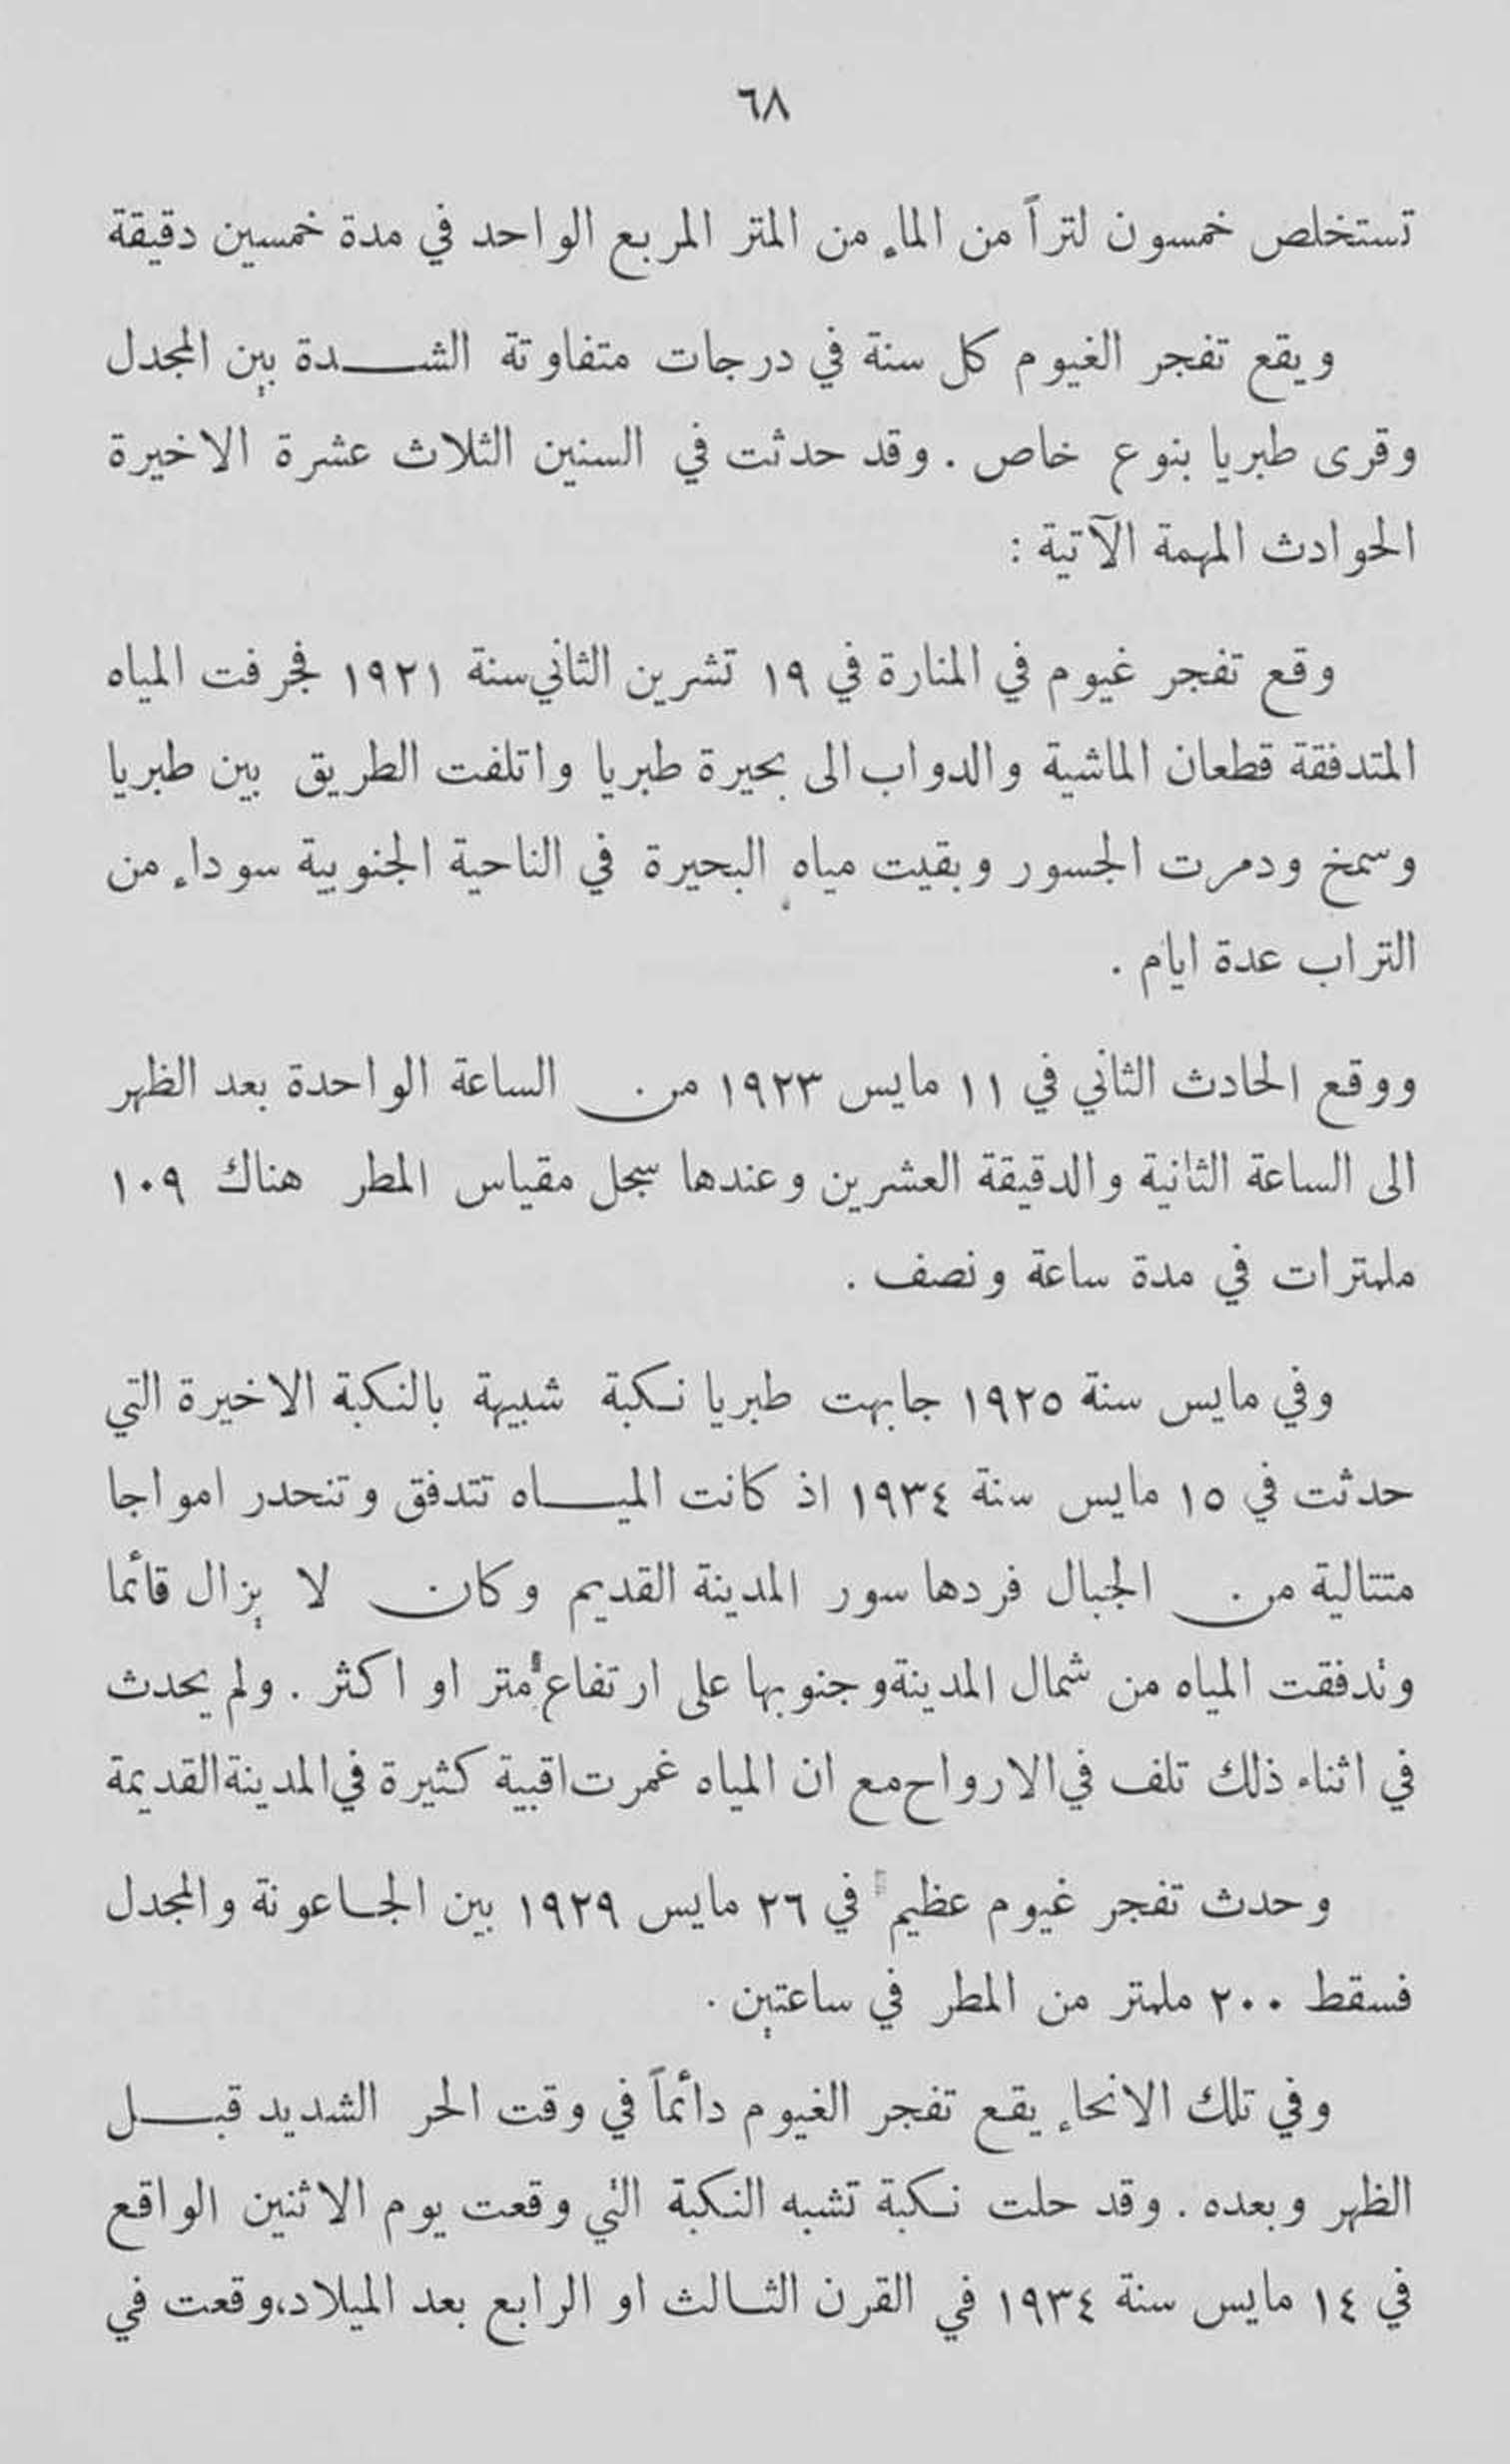 ٦٨
تستخلص خمسون لتراً من الماء من المتر المربع الواحد في مدة خمسين دقيقة
ويقع تفجر الغيوم كل سنة في درجات متفاوتة الشدة بين المجدل
وقرى طبريا بنوع خاص . وقد حدثت في السنين الثلاث عشرة الاخيرة
الحوادث المهمة الآتية :
وقع تفجر غيوم في المنارة في ١٩ تشرين الثاني سنة ١٩٢١ فجرفت المياه
المتدفقة قطعان الماشية والدواب الى بحيرة طبريا واتلفت الطريق بين طبريا
وسمخ ودمرت الجسور وبقيت مياه البحيرة في الناحية الجنوبية سوداء من
التراب عدة ايام .
ووقع الحادث الثاني في ١١ مايس ١٩٢٣ من الساعة الواحدة بعد الظهر
الى الساعة الثانية والدقيقة العشرين وعندها سجل مقياس المطر هناك ١٠٩
ملمترات في مدة ساعة ونصف .
وفي مايس سنة ١٩٢٥ جابهت طبريا نكبة شبيهة بالنكبة الاخيرة التي
حدثت في ١٥ مايس سنة ١٩٣٤ اذ كانت المياه تتدفق وتنحدر امواجا
متتالية من الجبال فردها سور المدينة القديم وكان لا يزال قائما
وتدفقت المياه من شمال المدينة وجنوبها على ارتفاع متر او اكثر . ولم يحدث
في اثناء ذلك تلف في الارواح مع ان المياه غمرت اقبية كثيرة في المدينة القديمة
وحدث تفجر غيوم عظيم في ٢٦ مايس ١٩٢٩ بين الجاعونة والمجدل
فسقط ٢٠٠ ملمتر من المطر في ساعتين .
وفي تلك الانحاء يقع تفجر الغيوم دائماً في وقت الحر الشديد قبل
الظهر وبعده . وقد حلت نكبة تشبه النكبة التي وقعت يوم الاثنين الواقع
في ١٤ مايس سنة ١٩٣٤ في القرن الثالث او الرابع بعد الميلاد،وقعت في